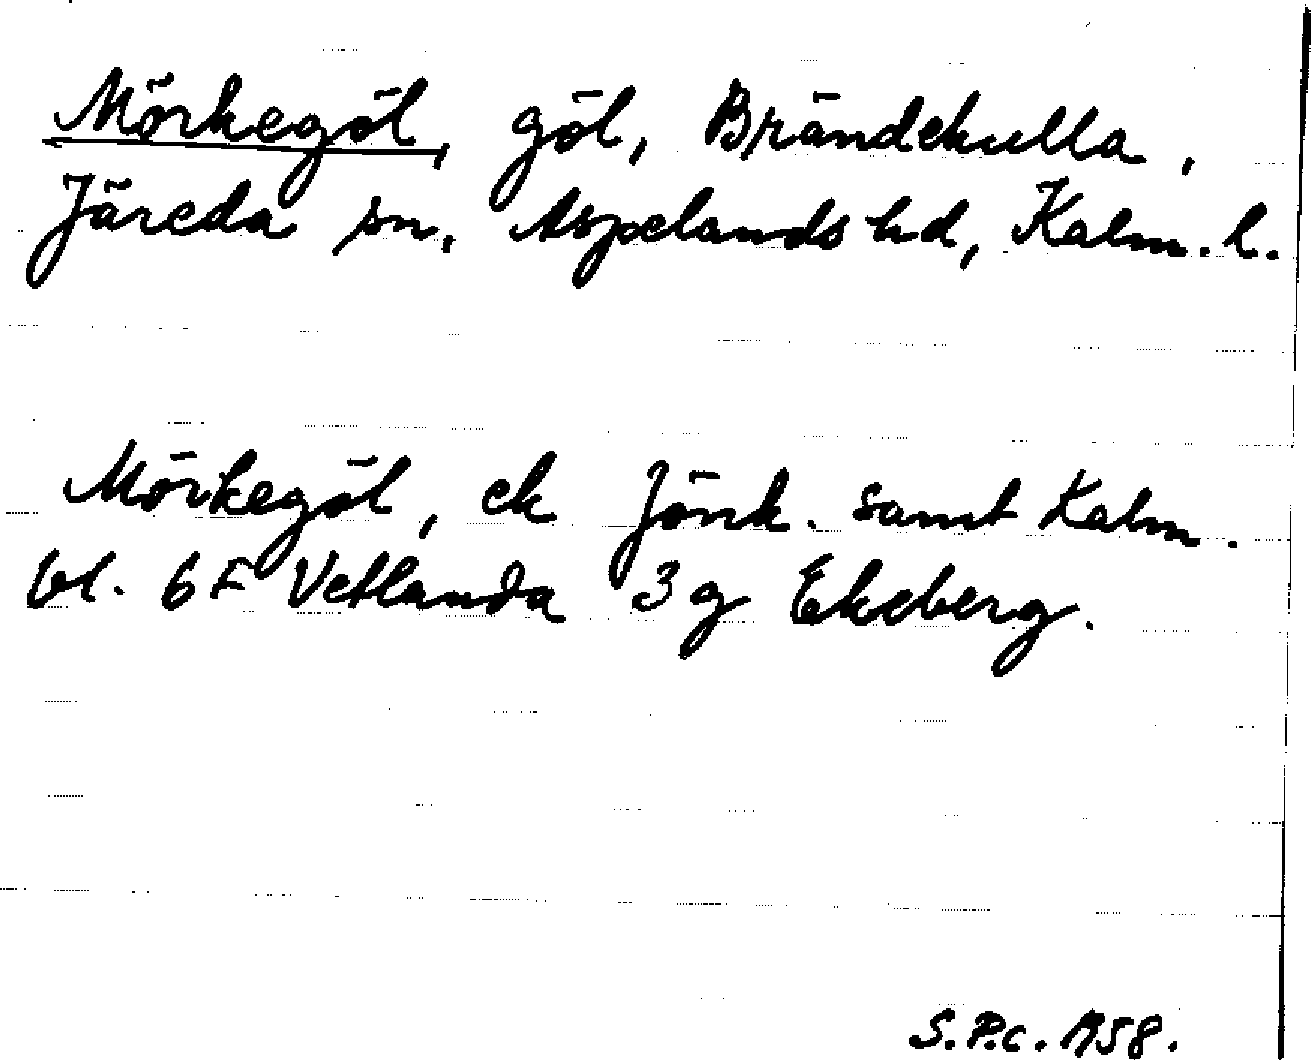 Mörkegöl, göl, Brändekulla,
Järeda sn, Aspelands hd, Kalm. l.
Mörkegöl, ek Jönk. samt Kalm.
bl. 6F Vetlanda 3g Ekeberg.
S.P.C. 1958.